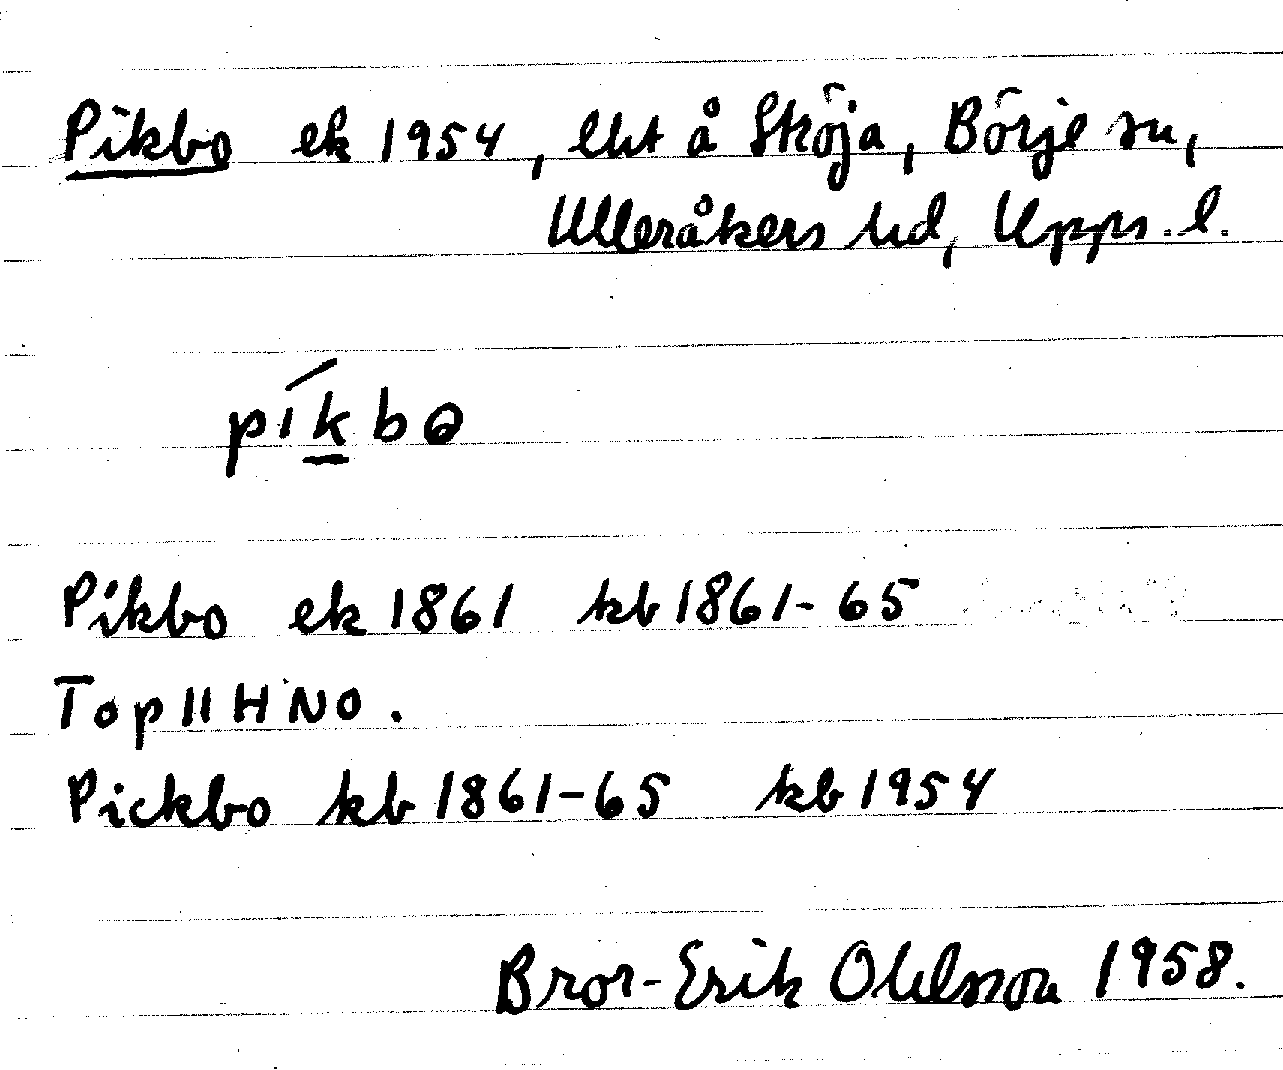 Pikbo ek 1954, lht å Sköja, Börje sn,
Ulleråkers hd, Upps. l.
píkbo
Pikbo ek 1861 kb 1861-65
Top II H NO.
Pickbo kb 1861-65 kb 1954
Bror-Erik Ohlsson 1958.